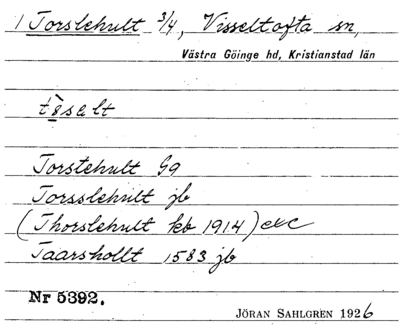 1 Torslehult 3/4, Visseltofta sn,
Västra Göinge hd, Kristianstad län
Torstehult Gg
Torsslehult jb
(Thorslehult kb 1914) etc
Taarshollt 1583 jb
Nr 5392.
JÖRAN SAHLGREN 1926